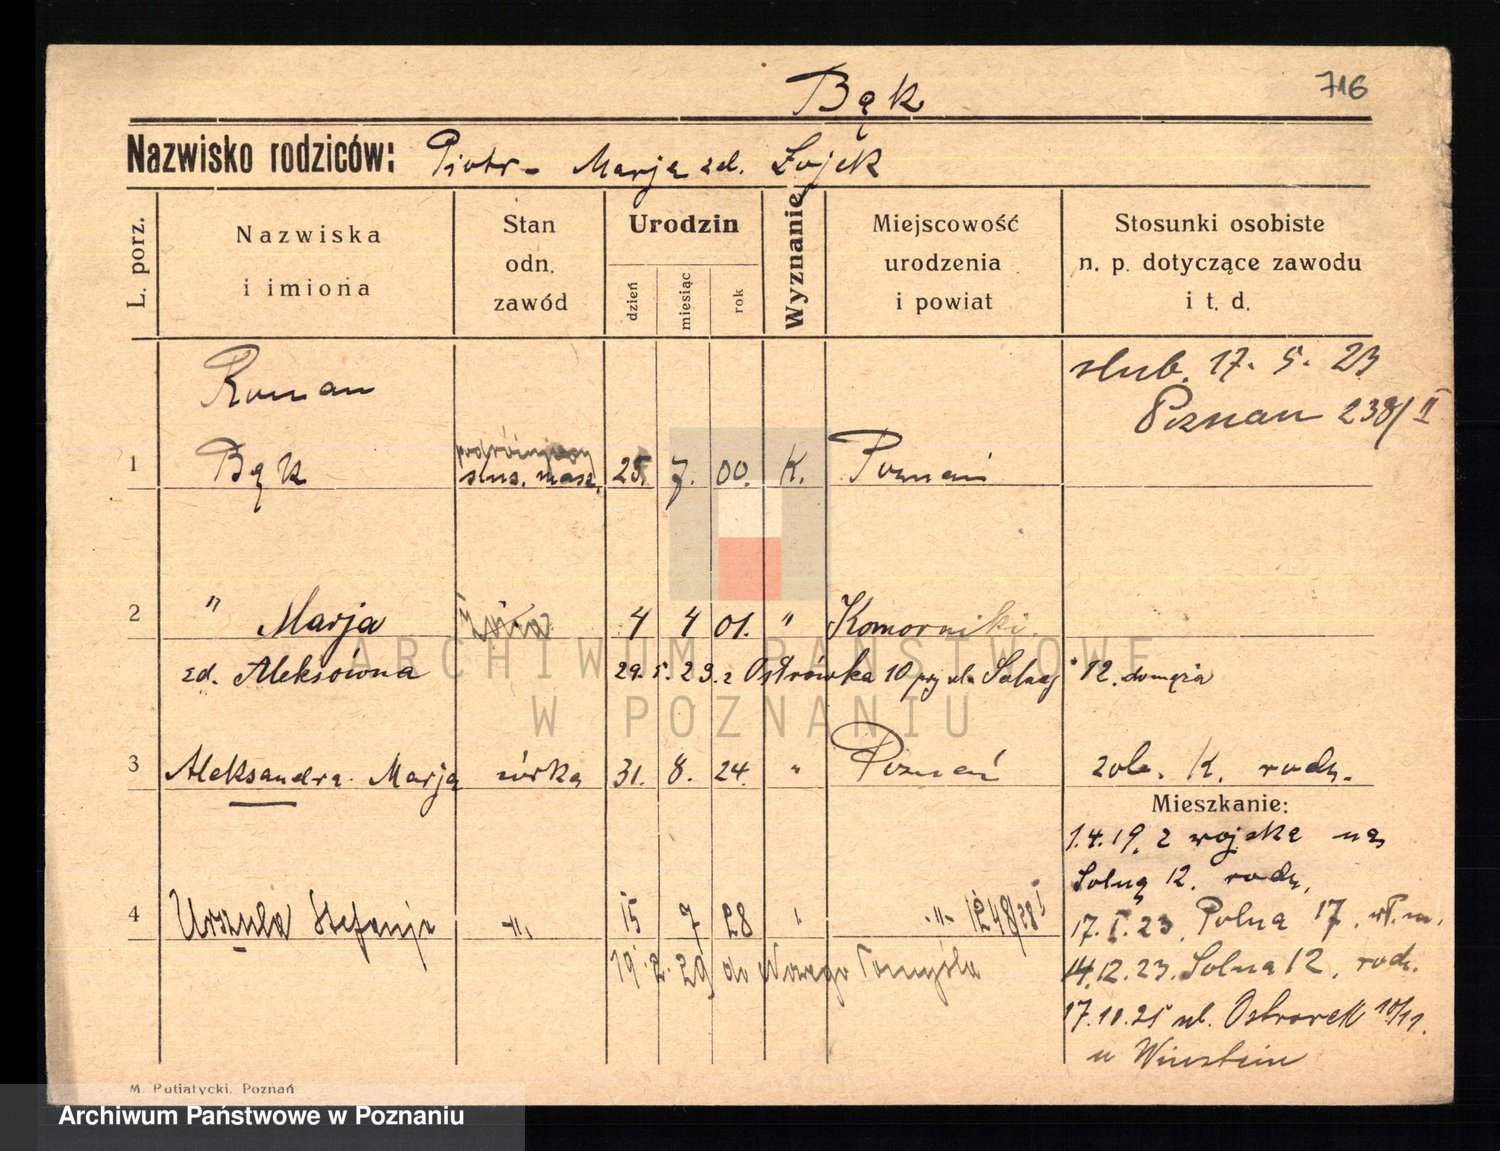 Bąk
716
Nazwisko rodziców: Piotr - Marja zd. Zojek
L. porz.
Nazwiska i imiona
Stan odn. zawód
Urodzin
dzień
miesiąc
rok
Wyznanie
Miejscowość urodzenia i powiat
Stosunki osobiste n. p. dotyczące zawodu i t. d.
Roman
slub. 17. 5. 23
Poznan 238/II
1 Bąk ślus. masz. 25. 7. 00. K. Poznań
2 " Marja 4 4 01. " Komorniki
zd. Aleksówna 29. 5. 23. z Ostrówka 10 przy ul. Solnej 12. do męża
3 Aleksandra Marja córka 31. 8. 24. " Poznań zob. K. rodz.
Mieszkanie:
1.4.19. z wojska na
Solną 12. rodz.
4 Urszula Stefanja -"- 15 7 28 -"- 1248/28 I
17. I. 23. Polna 17. wł. m.
19. 2. 29 do Nowego Tomyśla
14.12.23. Solna 12. rodz.
17.10.25 ul. Ostrówek 10/11.
u Winstein
M. Putiatycki, Poznań
ARCHIWUM PAŃSTWOWE
W POZNANIU
Archiwum Państwowe w Poznaniu